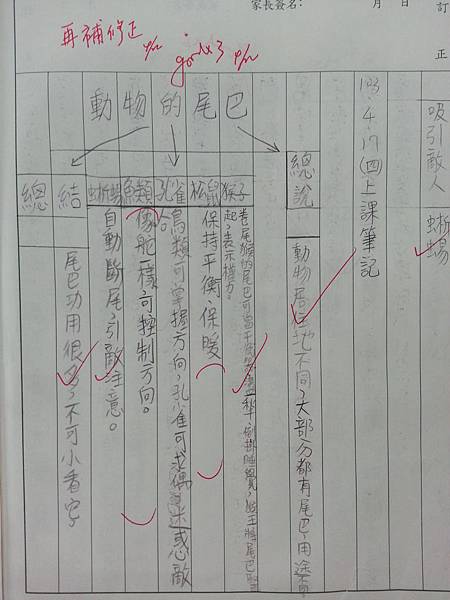 家長簽名：
月 日
訂
正
再補修正
good×3
吸引敵人 蜥蜴
103.4.17(四)上課筆記
動物的尾巴
總說
動物居住地不同，大部分都有尾巴，用途
猴子
起，表示權力。
松鼠
保持平衡、保暖
孔雀
鳥類可掌握方向，孔雀可求偶、迷惑敵
魚類
像舵一樣，可控制方向。
蜥蜴
自動斷尾，引敵注意。
總結
尾巴功用很多，不可小看它